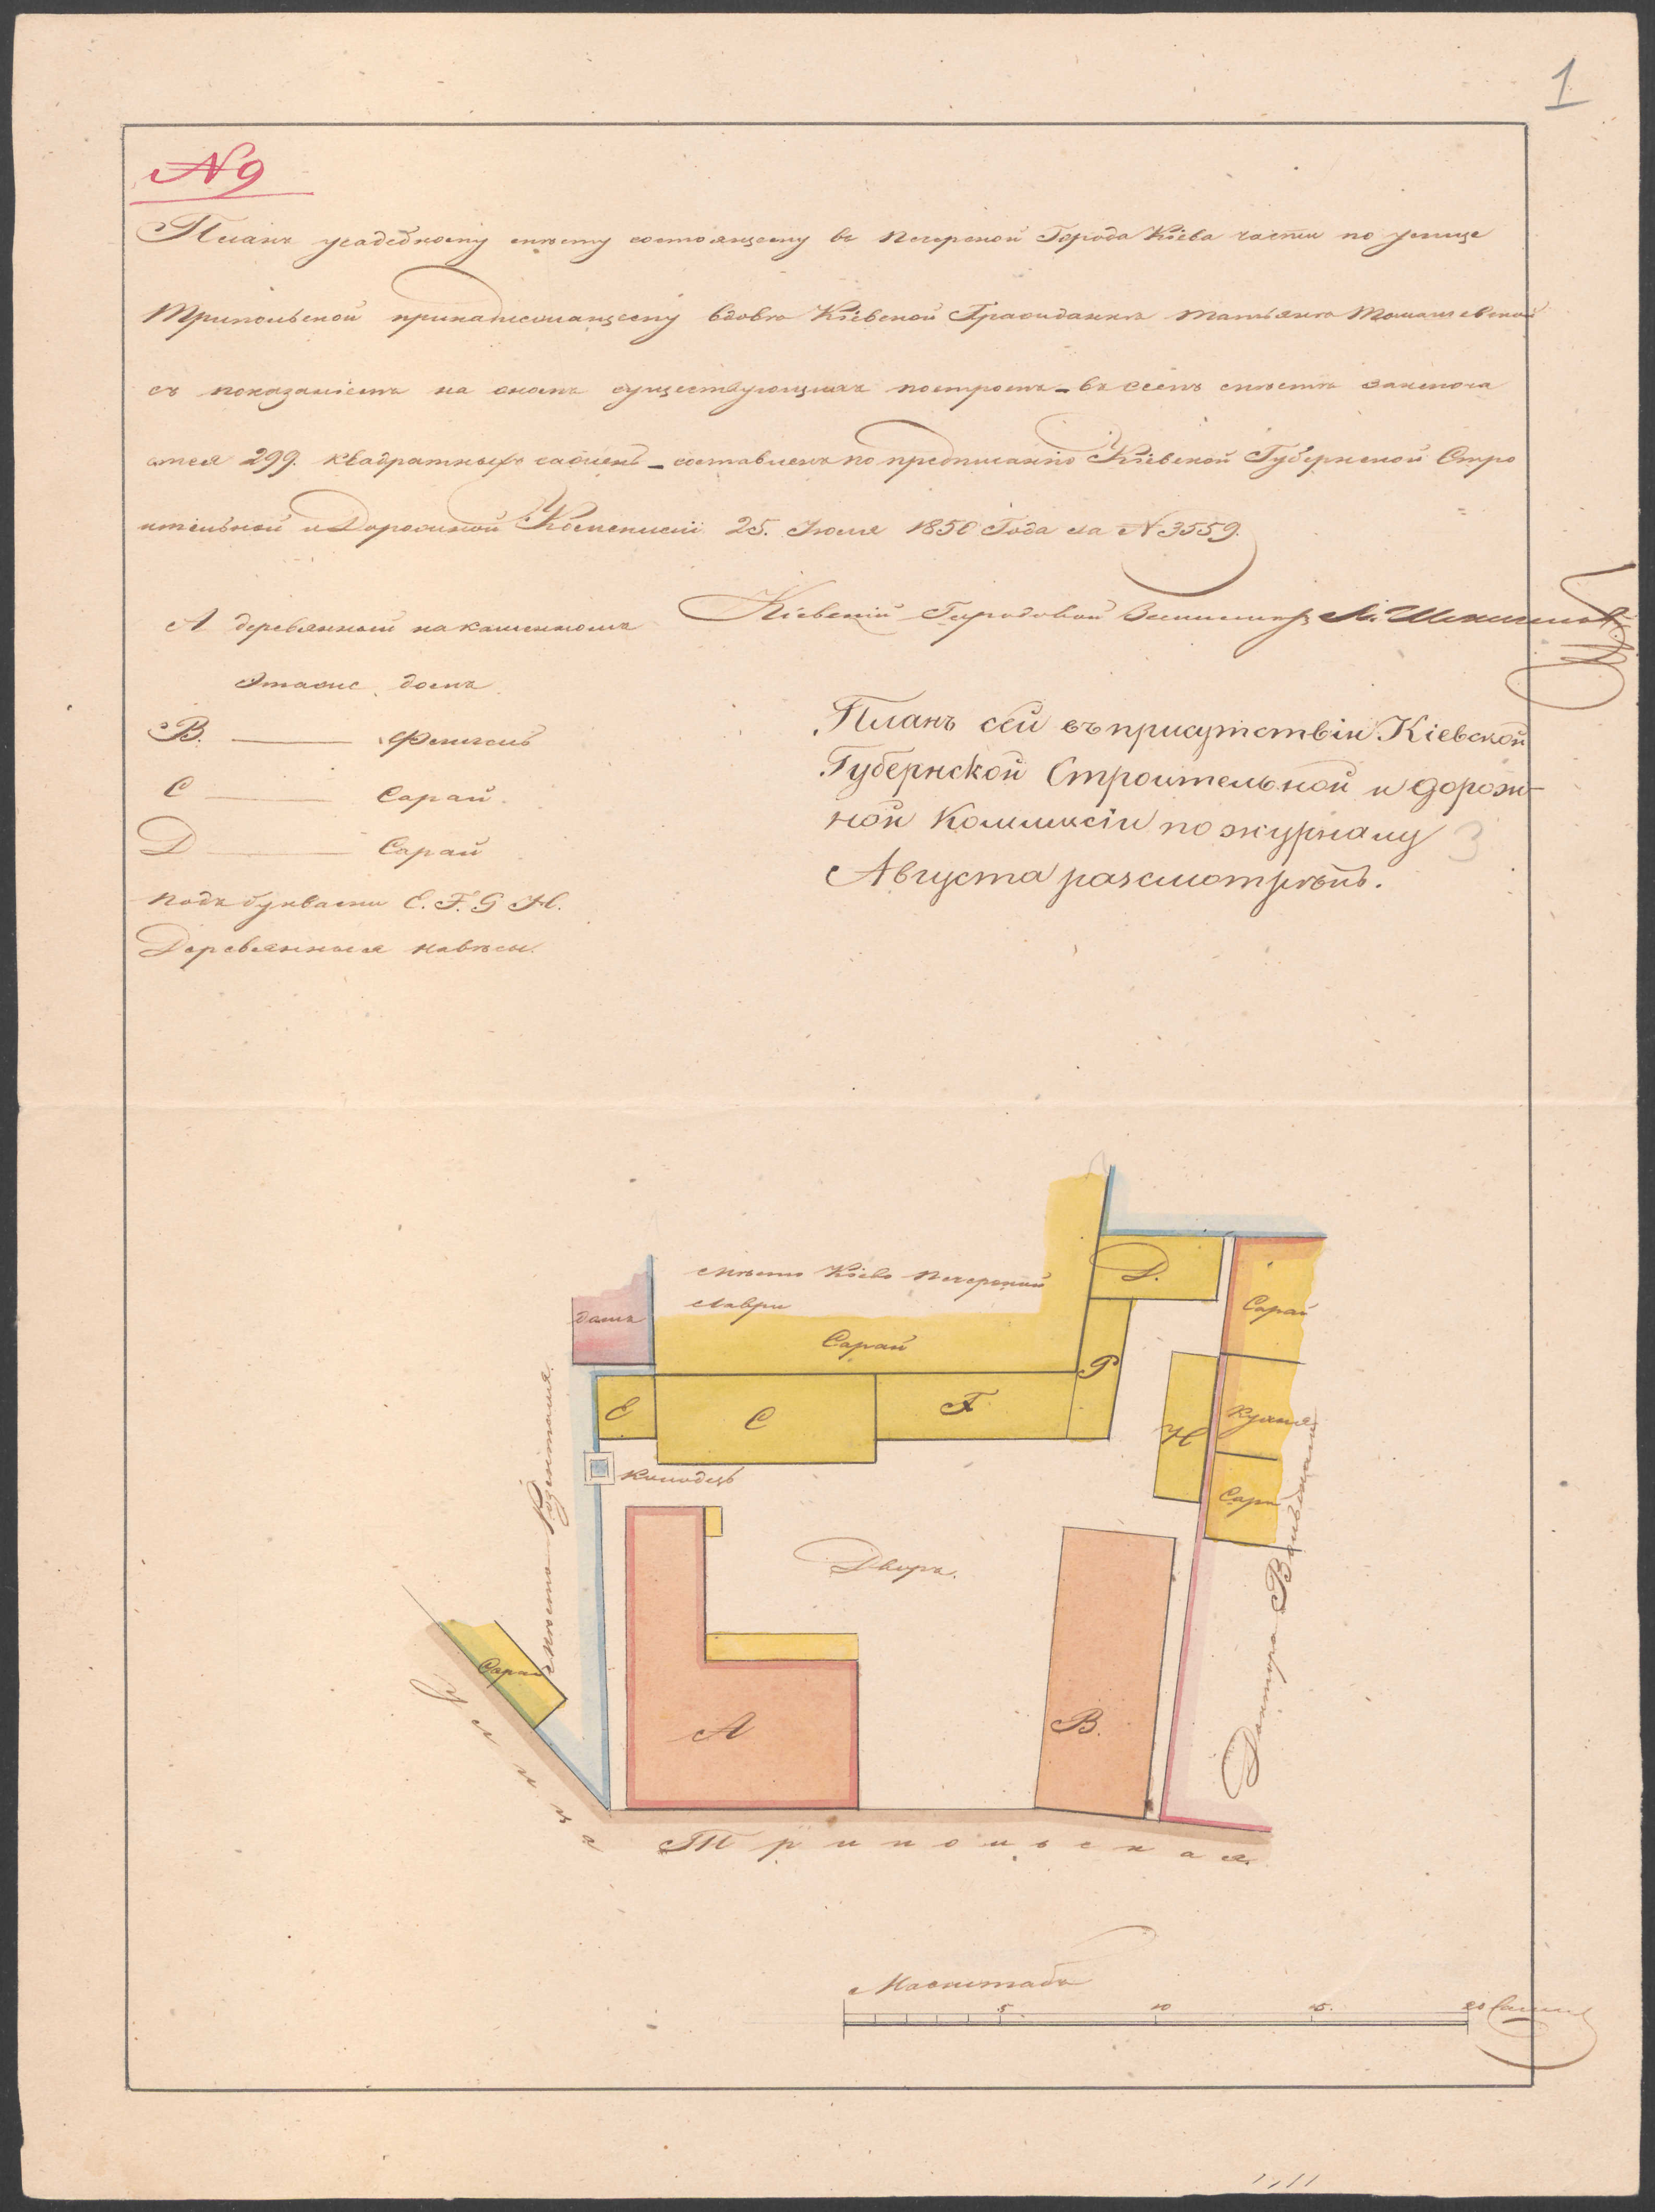 1
№ 9
Планъ усадебному мѣсту состоящему въ Печерской Города Кіева части по улице
Трипольской принадлежащему вдовѣ Кіевской Гражданкѣ Татьянѣ
съ показаніемъ на ономъ существующихъ построекъ – въ семъ мѣстѣ заключа
ется 299. квадратныхъ саженъ – составленъ по предписанію Кіевской Губернской Стро
ительной и Дорожной Коммисіи 25. Іюля 1850 Года за № 3559.
Кіевскій Городовой
А деревянный на каменномъ
этаже домъ.
В. — Флигель
С — Сарай.
D — Сарай
подъ буквами Е. F. G H.
Деревянныя навѣсы.
Планъ сей въ присутствіи Кіевской
Губернской Строительной и Дорож-
ной Коммисіи по журналу 3
Августа разсмотрѣнъ.
мѣсто Кіево Печерской
Лавры
домъ
Сарай
D.
Сарай
G
E
C
F
H
Кухня
Сара
Колодезь
Дворъ.
мѣсто
Сарай
A
B.
Доктора
Улица
Трипольская.
Масштабъ
5 10 15. 20 Сажень